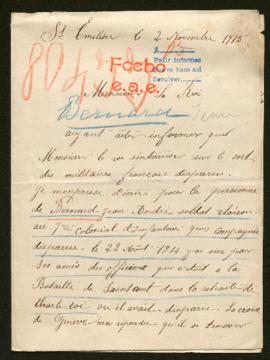 St Emilion le 2 Novembre 1915
Fecho
e.a.e.
Pedir informes
Devolver
Monsieur le Roi
Bernard Jean
ayant été informer que
Monsieur le Roi sur le sort
des militaires français disparus
je m'empresse d'écrire pour la personne
de Bernard Jean André soldat clairon
au 7me colonial d'Infanterie Compagnie
disparu le 22 Août 1914 j'ai sue par
ses amis des officiers que c'était a la
Bataille de dans la retraite de
ou il avait disparue. La croix
de Genève ma répondu qu'il se trouver